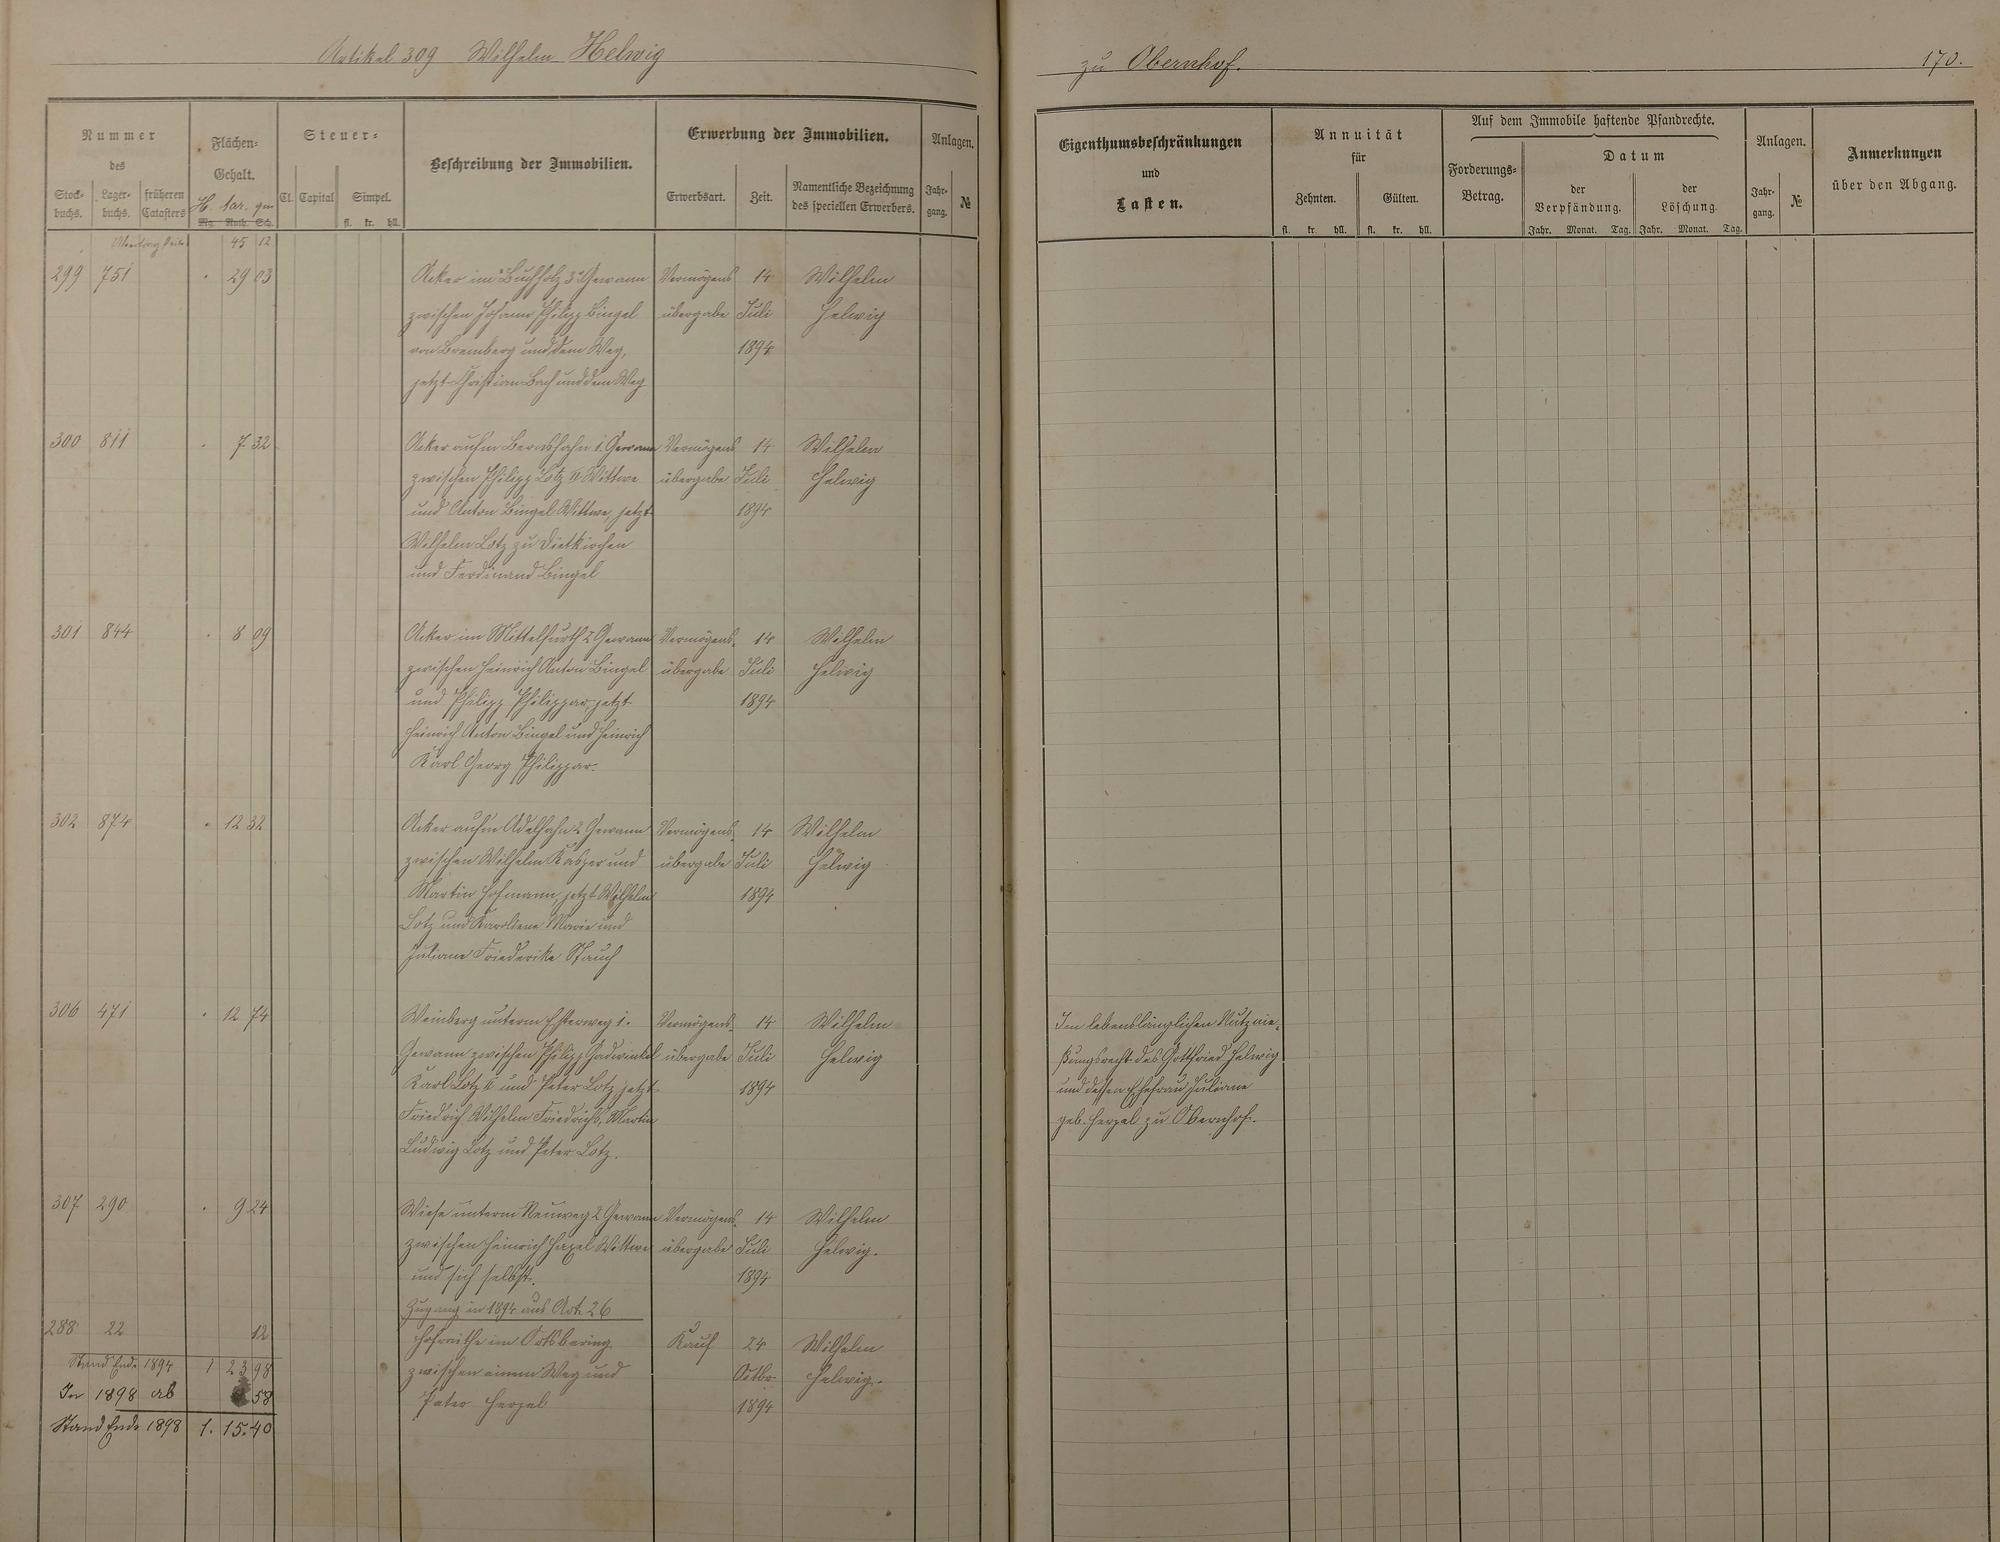 Artikel 309 Wilhelm Helwig
zu Obernhof.
170.
Nummer
des
Stock-
buchs.
Lager-
buchs.
früheren
Catasters
Flächen-
Gehalt.
H. ar. qm
Mg. Ruth. Sch.
Steuer-
Cl. Capital Simpel.
fl. kr. hll.
Beschreibung der Immobilien.
Erwerbung der Immobilien.
Erwerbsart. Zeit.
Namentliche Bezeichnung
des speciellen Erwerbers.
Anlagen.
Jahr-
gang. №
Eigenthumsbeschränkungen
und
Lasten.
Annuität
für
Zehnten. Gülten.
fl. kr. hll. fl. kr. hll.
Auf dem Immobile haftende Pfandrechte.
Forderungs-
Betrag.
Datum
der
Verpfändung.
der
Löschung.
Jahr. Monat. Tag. Jahr. Monat. Tag.
Anlagen.
Jahr-
gang. №
Anmerkungen
über den Abgang.
45 12
299 751 29 03 Acker im Buchholz 3. Gewann Vermögens 14 Wilhelm
zwischen Johann Philipp Bingel übergabe Juli Helwig
von Bremberg und dem Weg, 1894
jetzt Christian Bach und dem Weg
300 811 7 32 Acker auf'm 1. Gewann Vermögens 14 Wilhelm
zwischen Philipp Lotz IV Wittwe übergabe Juli Helwig
und Anton Bingel Wittwe, jetzt 1894
Wilhelm Lotz zu Dietkirchen
und Ferdinand Bingel
301 844 8 09 Acker im Mittelfurth 2 Gewann Vermögens- 14 Wilhelm
zwischen Heinrich Anton Bingel übergabe Juli Helwig
und Philipp Philippar, jetzt 1894
Heinrich Anton Bingel und Heinrich
Karl Georg Philippar.
302 874 12 32 Acker auf'm Adelhahn 2 Gewann Vermögens- 14 Wilhelm
zwischen Wilhelm Kasper und übergabe Juli Helwig
Martin Hofmann, jetzt Wilhelm 1894
Lotz und Karoline Marie und
Juliane Friederike Stauch
306 471 12 74 Weinberg unterm 1. Vermögens- 14 Wilhelm
Gewann zwischen Philipp übergabe Juli Helwig
Karl Lotz II und Peter Lotz, jetzt 1894
Friedrich Wilhelm Friedrichs, Martin
Ludwig Lotz und Peter Lotz.
Im lebenslänglichen Nutznie-
ßungsrecht des Gottfried Helwig
und dessen Ehefrau Juliane
geb. Herpel zu Obernhof.
307 290 9 24 Wiese unterm Neuweg 2 Gewann Vermögens- 14 Wilhelm
zwischen Heinrich Wittwe übergabe Juli Helwig.
und sich selbst. 1894
Zugang in 1894 aus Art. 26
288 22 12 Hofraithe im Ortsbering Kauf 24 Wilhelm
zwischen einem Weg und Octbr. Helwig.
Peter Herpel 1894
Stand Ende 1894 1 23 98
In 1898 ab 58
Stand Ende 1898 1. 15. 40